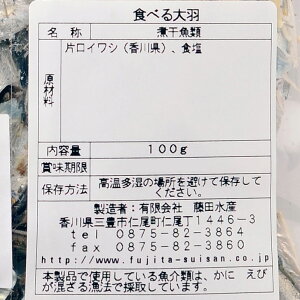 食べる大羽
名 称 煮干魚類
原材料 片口イワシ(香川県)、食塩
内容量 100g
賞味期限
保存方法 高温多湿の場所を避けて保存してください。
製造者:有限会社 藤田水産
香川県三豊市仁尾町仁尾丁1446-3
tel 0875-82-3864
fax 0875-82-3860
http://www.fujita-suisan.co.jp
本製品で使用している魚介類は、かに えび
が混ざる漁法で採取しています。